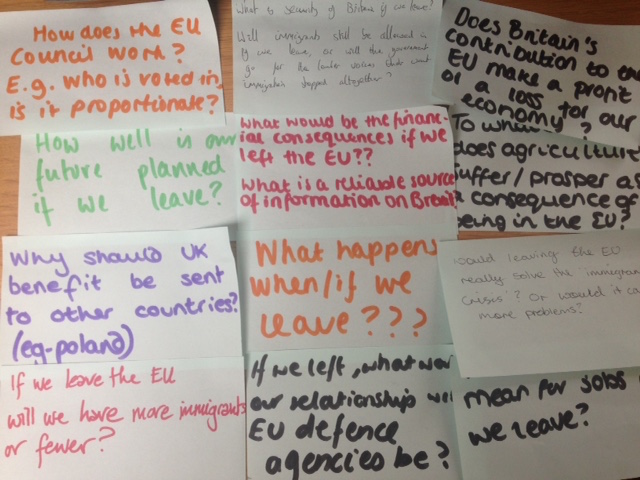 How does the EU
Council work?
E.g. who is voted in,
is it proportionate?
What is security of Britain if we leave?
Will immigrants still be allowed
if we leave, or will the government
go for the voices that want
immigration stopped altogether?
Does Britain's
contribution to the
EU make a profit
or a loss for our
economy?
How well is our
future planned
if we leave?
What would be the financ-
ial consequences if we
left the EU??
What is a reliable source
of information on Brexit
To what
does agricultur
suffer/prosper as
a consequence of
being in the EU?
Why should UK
benefit be sent
to other countries?
(eg-poland)
What happens
when/if we
leave???
Would leaving the EU
really solve the 'immigrant
crisis'? Or would it
more problems?
If we leave the EU
will we have more immigrants
or fewer?
If we left, what wou
our relationship wi
EU defence
agencies be?
mean for jobs
we leave?